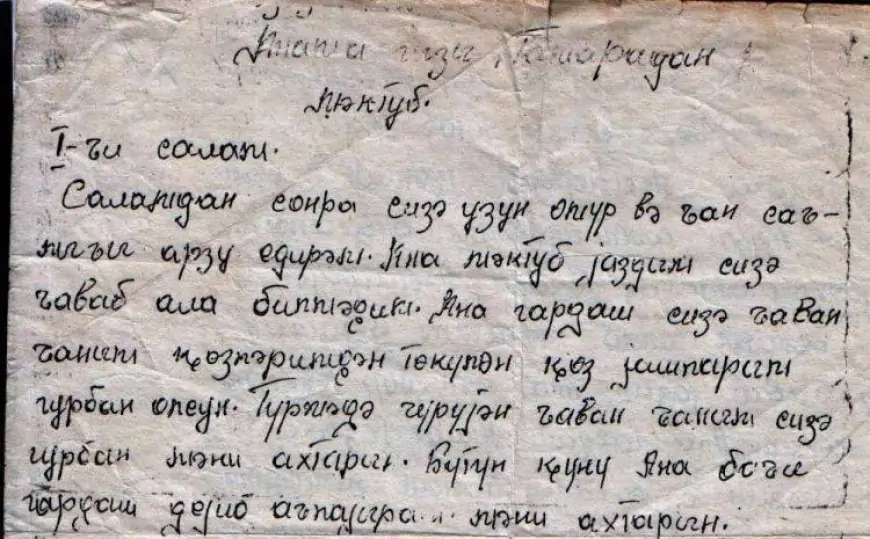 гызы Тамарадан
мәктуб.
I-ъи салам.
Саламдан сонра сизә узун омур вә ъан саъ-
лыгъы арзу едирәм. Ана мәктуб јаздым сизә
ъаваб ала билмәдим. Ана гардаш сизә ъаван
ъаным қөзләримдән төкүлән қөз јашларым
гурбан олсун. Түрмәдә чүрүјән ъаван ъаным сизә
гурбан мәни ахтарын. Бүтүн қүнү Ана баъы
гардаш дејиб аълајырам мәни ахтарын.